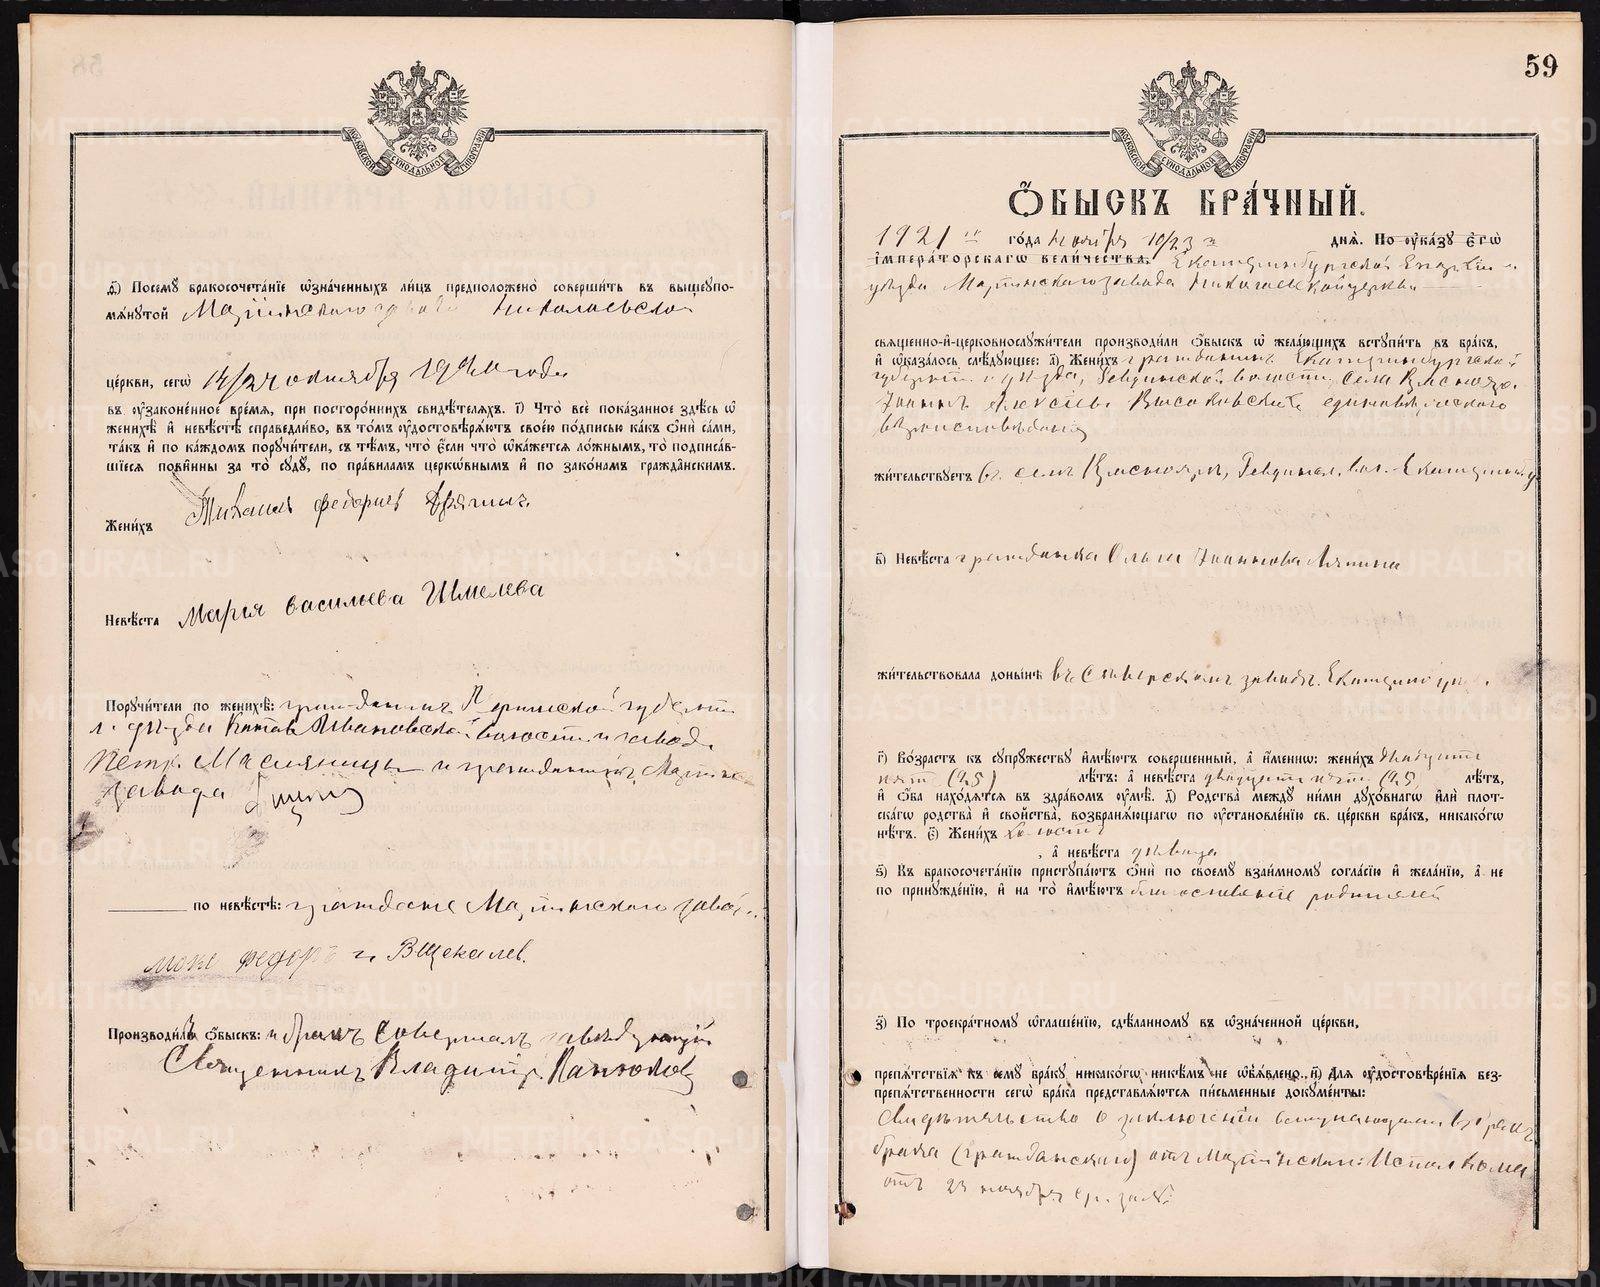 д҃) Посемꙋ бракосочета́нїе ѡзна́ченныхъ ли́цъ предположено̀ соверши́ть въ вышеꙋпо-
мѧ́нꙋтой Мартинскаго завода Николаевской
це́ркви, сегѡ̀ 14/27 октября 1920 года
въ ᲂу҆законе́нное вре́мѧ, при посторо́ннихъ свидѣ́телѧхъ. і҃) Что̀ всѐ пока́занное здѣ́сь ѡ҆
женихѣ̀ и҆ невѣ́стѣ справедли́во, въ то́мъ ᲂу҆достовѣрѧ́ютъ свое́ю по́дписью ка́къ ѻ҆нѝ са́ми,
та́къ и҆ по ка́ждомъ порꙋчи́тели, съ тѣ́мъ, что̀ є҆́сли что̀ ѡ҆ка́жетсѧ ло́жнымъ, то̀ подписа́в-
шїесѧ пови́нны за то̀ сꙋдꙋ̀, по пра́виламъ церкѡ́внымъ и҆ по зако́намъ гражда́нскимъ.
Жени́хъ Михаилъ Федоричъ
Невѣ́ста Марія Васильева Шмелева
Порꙋчи́тели по женихѣ̀: гражданинъ Пермской губерніи
и уѣзда Ивановской волости и завода
Петр. Масляницы и гражданинъ Мартин
завода
по невѣ́стѣ: граждане Мартинскаго завода
Федоръ и В Щекалев.
Производи́лъ ѻ҆́быскъ: и бракъ совершалъ завѣдующій
Священникъ Владиміръ
59
Ѻ҆́БЫСКЪ БРА́ЧНЫЙ.
1921 го́да ноября 10/23 днѧ̀. По ᲂу҆ка́зꙋ є҆гѡ̀
і҆мпера́торскагѡ вели́чества. Екатеринбургской Епархіи и
уѣзда Мартинскаго завода Николаевской церкви
свѧще́нно-и҆-церковнослꙋжи́тели производи́ли ѻ҆́быскъ ѡ҆ жела́ющихъ встꙋпи́ть въ бра́къ,
и҆ ѡ҆каза́лось слѣ́дꙋющее: а҃) Жени́хъ гражданинъ Екатеринбургской
губерніи и уѣзда, Ревдинской волости, села Краснояр.
Іоаннъ Алексѣевъ Высоковскихъ единовѣрческаго
вѣроисповѣданія
жи́тельствꙋетъ въ селѣ Краснояръ, Ревдинск. вол. Екатеринб. у
в҃) Невѣ́ста гражданка Ольга Іоаннова Ляпина
жи́тельствовала доны́нѣ въ Сысертскомъ заводѣ Екатерин. у
г҃) Во́зрастъ къ сꙋпрꙋ́жествꙋ и҆мѣ́ютъ соверше́нный, а҆ и҆́меннѡ: жени́хъ двадцати
пяти (25) лѣ́тъ: а҆ невѣ́ста двадцати пяти (25) лѣ́тъ,
и҆ ѻ҆́ба нахо́дѧтсѧ въ здра́вомъ ᲂу҆мѣ̀. д҃) Родства̀ междꙋ̀ ни́ми дꙋхо́внагѡ и҆лѝ пло́т-
скагѡ родства̀ и҆ сво́йства, возбранѧ́ющагѡ по ᲂу҆становле́нїю св. це́ркви бра́къ, никако́гѡ
нѣ́тъ. є҃) Жени́хъ холостъ
, а҆ невѣ́ста дѣвица
ѕ҃) Къ бракосочета́нїю пристꙋпа́ютъ ѻ҆нѝ по своемꙋ̀ взаи́мномꙋ согла́сїю и҆ жела́нїю, а҆ не
по принꙋжде́нїю, и҆ на то̀ и҆мѣ́ютъ благословеніе родителей
з҃) По троекра́тномꙋ ѡ҆глаше́нїю, сдѣ́ланномꙋ въ ѡ҆зна́ченной це́ркви,
препѧ́тствїѧ къ семꙋ̀ бра́кꙋ никако́гѡ никѣ́мъ не ѡ҆б̾ѧ́влено. и҃) Длѧ ᲂу҆достовѣре́нїѧ без-
препѧ́тственности сегѡ̀ бра́ка представлѧ́ютсѧ пи́сьменные докꙋме́нты:
Свидѣтельство о заключеніи
брака (гражданскаго) отъ Мартинскаго Исполкома
отъ 23 ноября с. г. за №